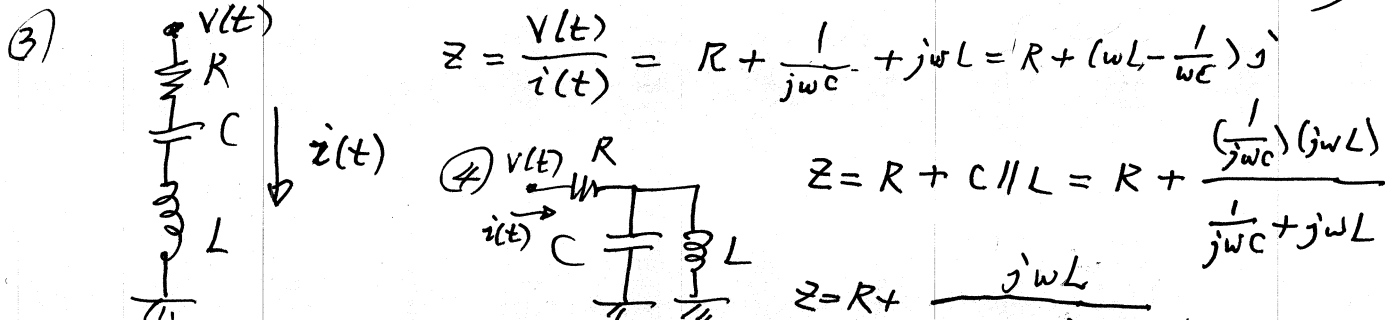 ③ V(t)
R
C
i(t)
L
Z = V(t)/i(t) = R + 1/jωC + jωL = R + (ωL - 1/ωC) j
④ V(t) R
i(t) C L
Z = R + C // L = R + (1/jωC)(jωL) / 1/jωC + jωL
Z = R + jωL